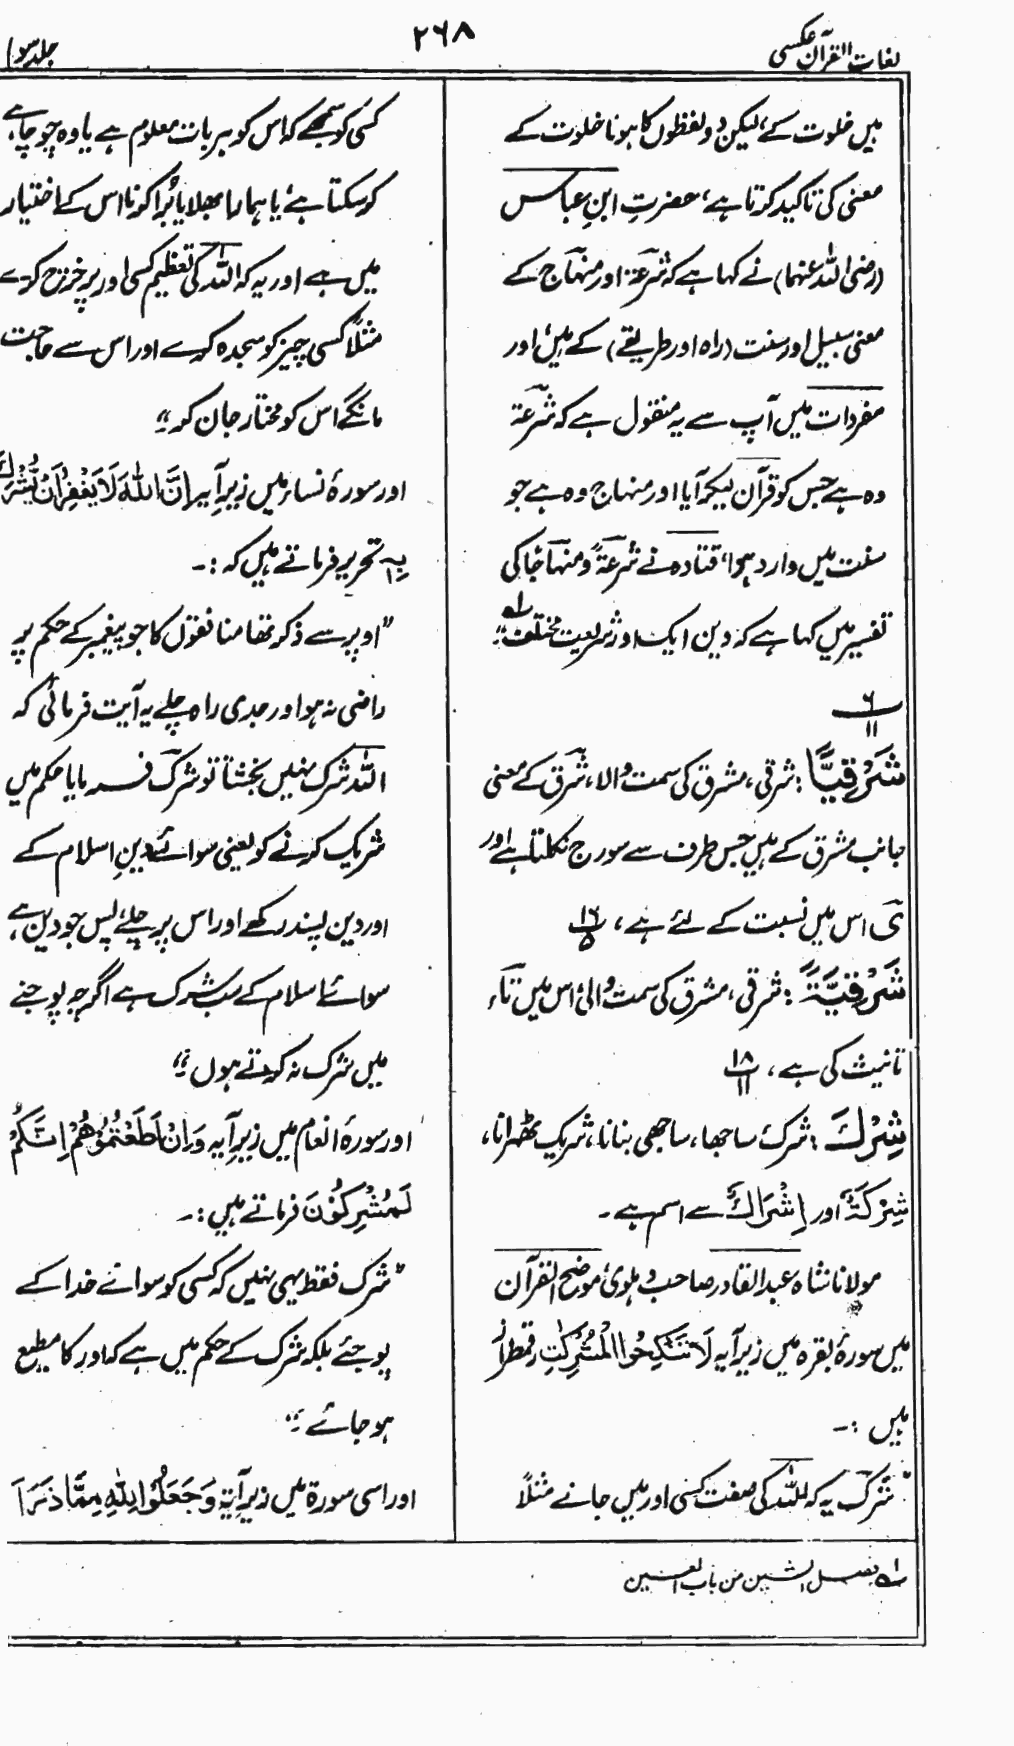 لغات القرآن عکسی
۲۶۸
جلد سوم
میں خلوت کے، لیکن دو لفظوں کا ہونا خلوت کے
معنی کی تاکید کرتا ہے، حضرتِ ابنِ عباس
(رضی اللہ عنہما) نے کہا ہے کہ شرعۃ اور منہاج کے
معنی سبیل اور سنت (راہ اور طریقے) کے ہیں، اور
مفردات میں آپ سے یہ منقول ہے کہ شرعۃ
وہ ہے جس کو قرآن لیکر آیا اور منہاج وہ ہے جو
سنت میں وارد ہوا، قتادہ نے شرعۃً ومنہاجًا کی
تفسیر میں کہا ہے کہ دین ایک اور شریعت مختلف ؎۱
۶
۱۱
شَرْقِیًّا : شرقی، مشرق کی سمت والا، شرق کے معنی
جانب مشرق کے ہیں جس طرف سے سورج نکلتا ہے اور
ی اس میں نسبت کے لئے ہے، ۱۶
۵
شَرْقِیَّۃً : شرقی، مشرق کی سمت والی، اس میں تاء
تانیث کی ہے، ۱۸
۱۱
شِرْكَ : شرک، ساجھا، ساجھی بنانا، شریک ٹھہرانا،
شِرْکَۃٌ اور اِشْرَاكٌ سے اسم ہے۔
مولانا شاہ عبدالقادر صاحب دہلوی موضح القرآن
میں سورۂ بقرہ میں زیر آیہ لَا تَنْکِحُوا الْمُشْرِکٰتِ رقمطراز
ہیں :۔
"شرک یہ کہ اللہ کی صفت کسی اور میں جانے مثلاً
کسی کو سمجھے کہ اس کو ہر بات معلوم ہے یا وہ جو چاہے
کر سکتا ہے، یا ہمارا بھلا یا بُرا کرنا اس کے اختیار
میں ہے اور یہ کہ اللہ کی تعظیم کسی اور پر خرچ کرے
مثلاً کسی چیز کو سجدہ کرے اور اس سے حاجت
مانگے اس کو مختار جان کر"
اور سورۂ نساء میں زیر آیہ اِنَّ اللّٰهَ لَا یَغْفِرُ اَنْ یُّشْرَكَ
بِهٖ تحریر فرماتے ہیں کہ :۔
"اوپر سے ذکر تھا منافقوں کا جو پیغمبر کے حکم پر
راضی نہ ہو اور جدی راہ چلے یہ آیت فرمائی کہ
اللہ شرک نہیں بخشتا تو شرک فرمایا حکم میں
شریک کرنے کو یعنی سوائے دینِ اسلام کے
اور دین پسند رکھے اور اس پر چلے، پس جو دین ہے
سوائے اسلام کے سب شرک ہے اگرچہ پوجنے
میں شرک نہ کرتے ہوں"
اور سورۂ انعام میں زیر آیہ وَاِنْ اَطَعْتُمُوْهُمْ اِنَّکُمْ
لَمُشْرِکُوْنَ فرماتے ہیں :۔
"شرک فقط یہی نہیں کہ کسی کو سوائے خدا کے
پوجئے بلکہ شرک کے حکم میں ہے کہ اور کا مطیع
ہو جائے"
اور اسی سورۃ میں زیر آیۃ وَجَعَلُوْا لِلّٰهِ مِمَّا ذَرَاَ
؎۱ فصل الشین من باب العین